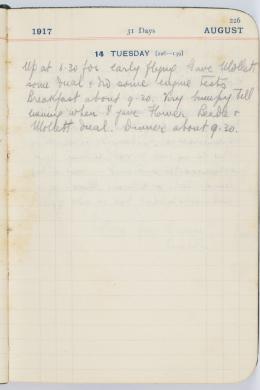 226
1917 31 Days AUGUST
14 TUESDAY [226-139]
Up at 5.30 for early flying. Gave Mollett
some dual & did some engine tests.
Breakfast about 9.30. Very bumpy till
evening when I gave Flower, Beadle &
Mollett dual. Dinner about 9.30.